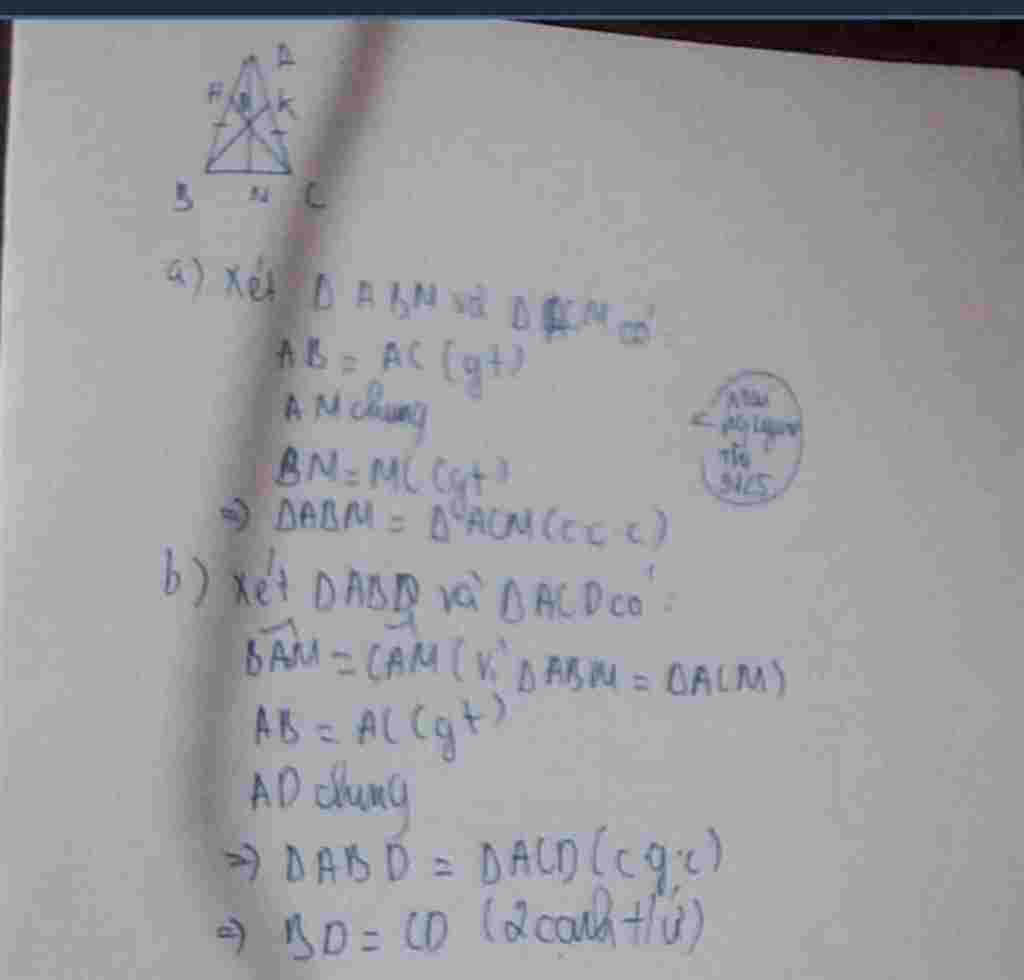 A
H D K
B N C
a) Xét Δ ABM và Δ ACM có
AB = AC (gt)
AM chung
BM = MC (gt)
=> ΔABM = ΔACM (c c c)
b) Xét ΔABD và ΔACD có :
BAM = CAM (vì ΔABM = ΔACM)
AB = AC (gt)
AD chung
=> ΔABD = ΔACD (c g.c)
=> BD = CD (2 cạnh t/ứ)